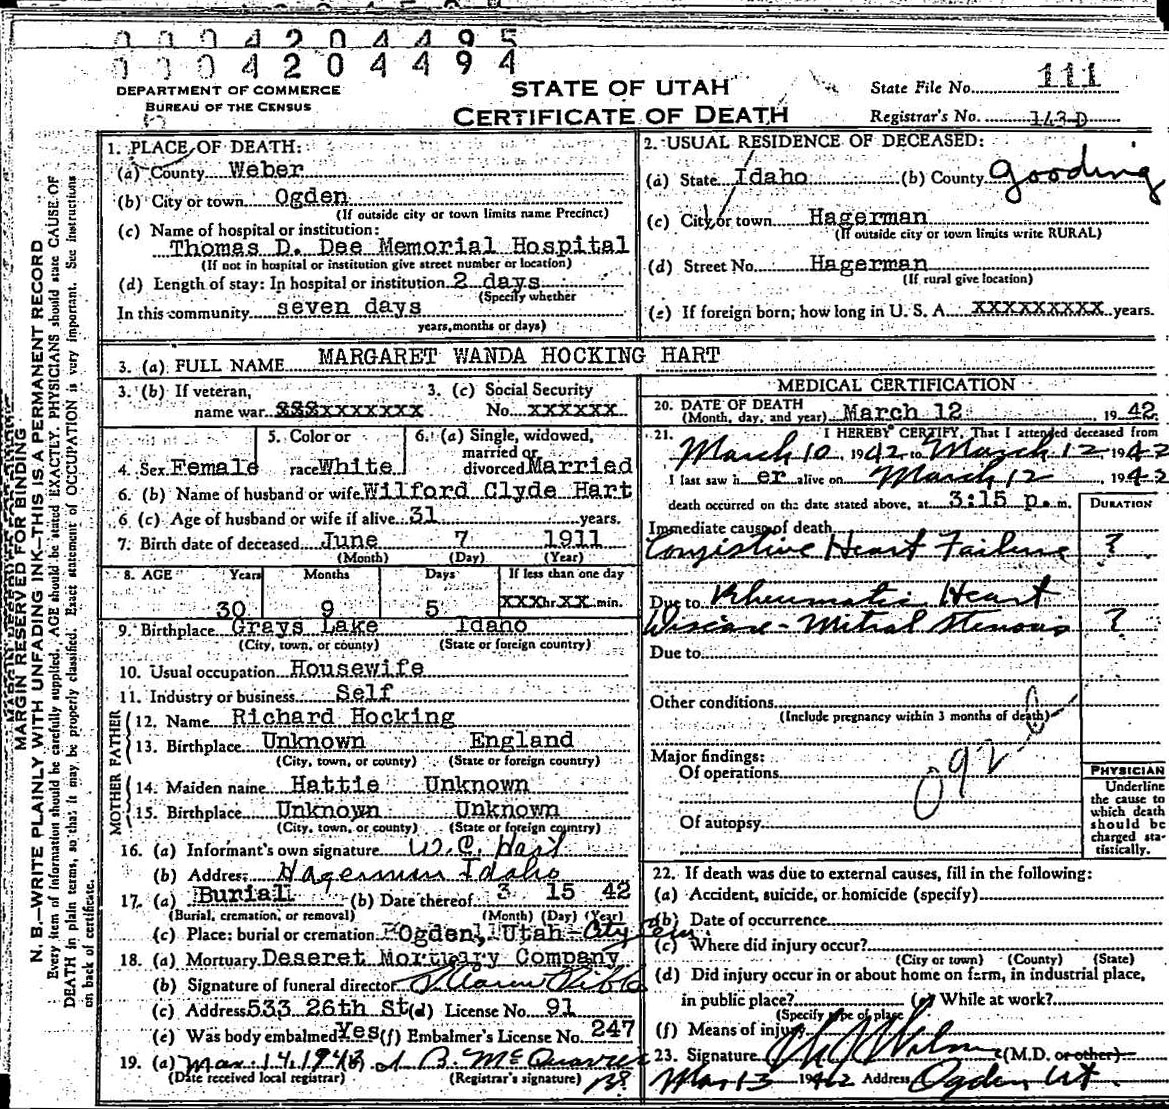 0004204495
0004204494
DEPARTMENT OF COMMERCE
BUREAU OF THE CENSUS
STATE OF UTAH
CERTIFICATE OF DEATH
State File No. 111
Registrar's No. 143-D
MARGIN RESERVED FOR BINDING
N. B.—WRITE PLAINLY WITH UNFADING INK—THIS IS A PERMANENT RECORD
Every item of information should be carefully supplied. AGE should be stated EXACTLY. PHYSICIANS should state CAUSE OF
DEATH in plain terms, so that it may be properly classified. Exact statement of OCCUPATION is very important. See instructions
on back of certificate.
1. PLACE OF DEATH:
(a) County Weber
(b) City or town Ogden
(If outside city or town limits name Precinct)
(c) Name of hospital or institution:
Thomas D. Dee Memorial Hospital
(If not in hospital or institution give street number or location)
(d) Length of stay: In hospital or institution 2 days
(Specify whether
In this community seven days
years, months or days)
2. USUAL RESIDENCE OF DECEASED:
(a) State Idaho (b) County Gooding
(c) City or town Hagerman
(If outside city or town limits write RURAL)
(d) Street No. Hagerman
(If rural give location)
(e) If foreign born; how long in U. S. A. XXXXXXXXX years.
3. (a) FULL NAME MARGARET WANDA HOCKING HART
3. (b) If veteran,
name war XXXXXXXXXX
3. (c) Social Security
No. XXXXXX
4. Sex Female
5. Color or
race White
6. (a) Single, widowed,
married or
divorced Married
6. (b) Name of husband or wife Wilford Clyde Hart
6 (c) Age of husband or wife if alive 31 years.
7. Birth date of deceased June 7 1911
(Month) (Day) (Year)
8. AGE Years Months Days If less than one day
30 9 5 XXX hr XX min.
9. Birthplace Grays Lake Idaho
(City, town, or county) (State or foreign country)
10. Usual occupation Housewife
11. Industry or business Self
FATHER
12. Name Richard Hocking
13. Birthplace Unknown England
(City, town, or county) (State or foreign country)
MOTHER
14. Maiden name Hattie Unknown
15. Birthplace Unknown Unknown
(City, town, or county) (State or foreign country)
16. (a) Informant's own signature W.C. Hart
(b) Address Hagerman Idaho
17. (a) Burial (b) Date thereof 3 15 42
(Burial, cremation, or removal) (Month) (Day) (Year)
(c) Place: burial or cremation Ogden, Utah - City Cem.
18. (a) Mortuary Deseret Mortuary Company
(b) Signature of funeral director
(c) Address 533 26th St (d) License No. 91
(e) Was body embalmed Yes (f) Embalmer's License No. 247
19. (a) Mar. 14, 1942
(Date received local registrar) (Registrar's signature)
MEDICAL CERTIFICATION
20. DATE OF DEATH
(Month, day, and year) March 12 1942
21. I HEREBY CERTIFY, That I attended deceased from
March 10, 1942 to March 12 1942
I last saw h er alive on March 12, 1942
death occurred on the date stated above, at 3:15 p. m.
DURATION
Immediate cause of death
Congistive Heart Failure ?
Due to Rheumatic Heart
Disease - Mitral Stenosis ?
Due to
Other conditions
(Include pregnancy within 3 months of death)
Major findings:
Of operations
092
Of autopsy
PHYSICIAN
Underline
the cause to
which death
should be
charged sta-
tistically.
22. If death was due to external causes, fill in the following:
(a) Accident, suicide, or homicide (specify)
(b) Date of occurrence
(c) Where did injury occur?
(City or town) (County) (State)
(d) Did injury occur in or about home on farm, in industrial place,
in public place? (e) While at work?
(Specify type of place)
(f) Means of injury
23. Signature (M.D. or other)
Mar 13 1942 Address Ogden Ut.